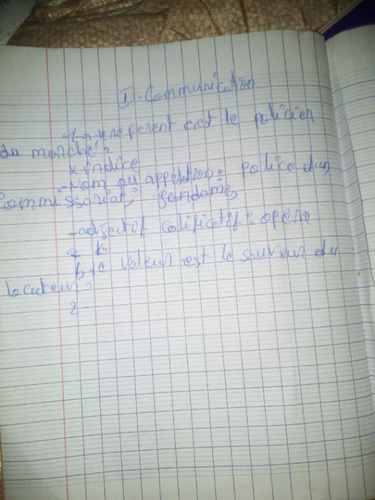 I - Communication
référent c'est le policier
du marché
* indice
- Nom ou appellation : police d'un
commissariat, gendarme,
- adjectif calificatif : opéré
b - c valeur est le sauveur du
locuteur.
2 -